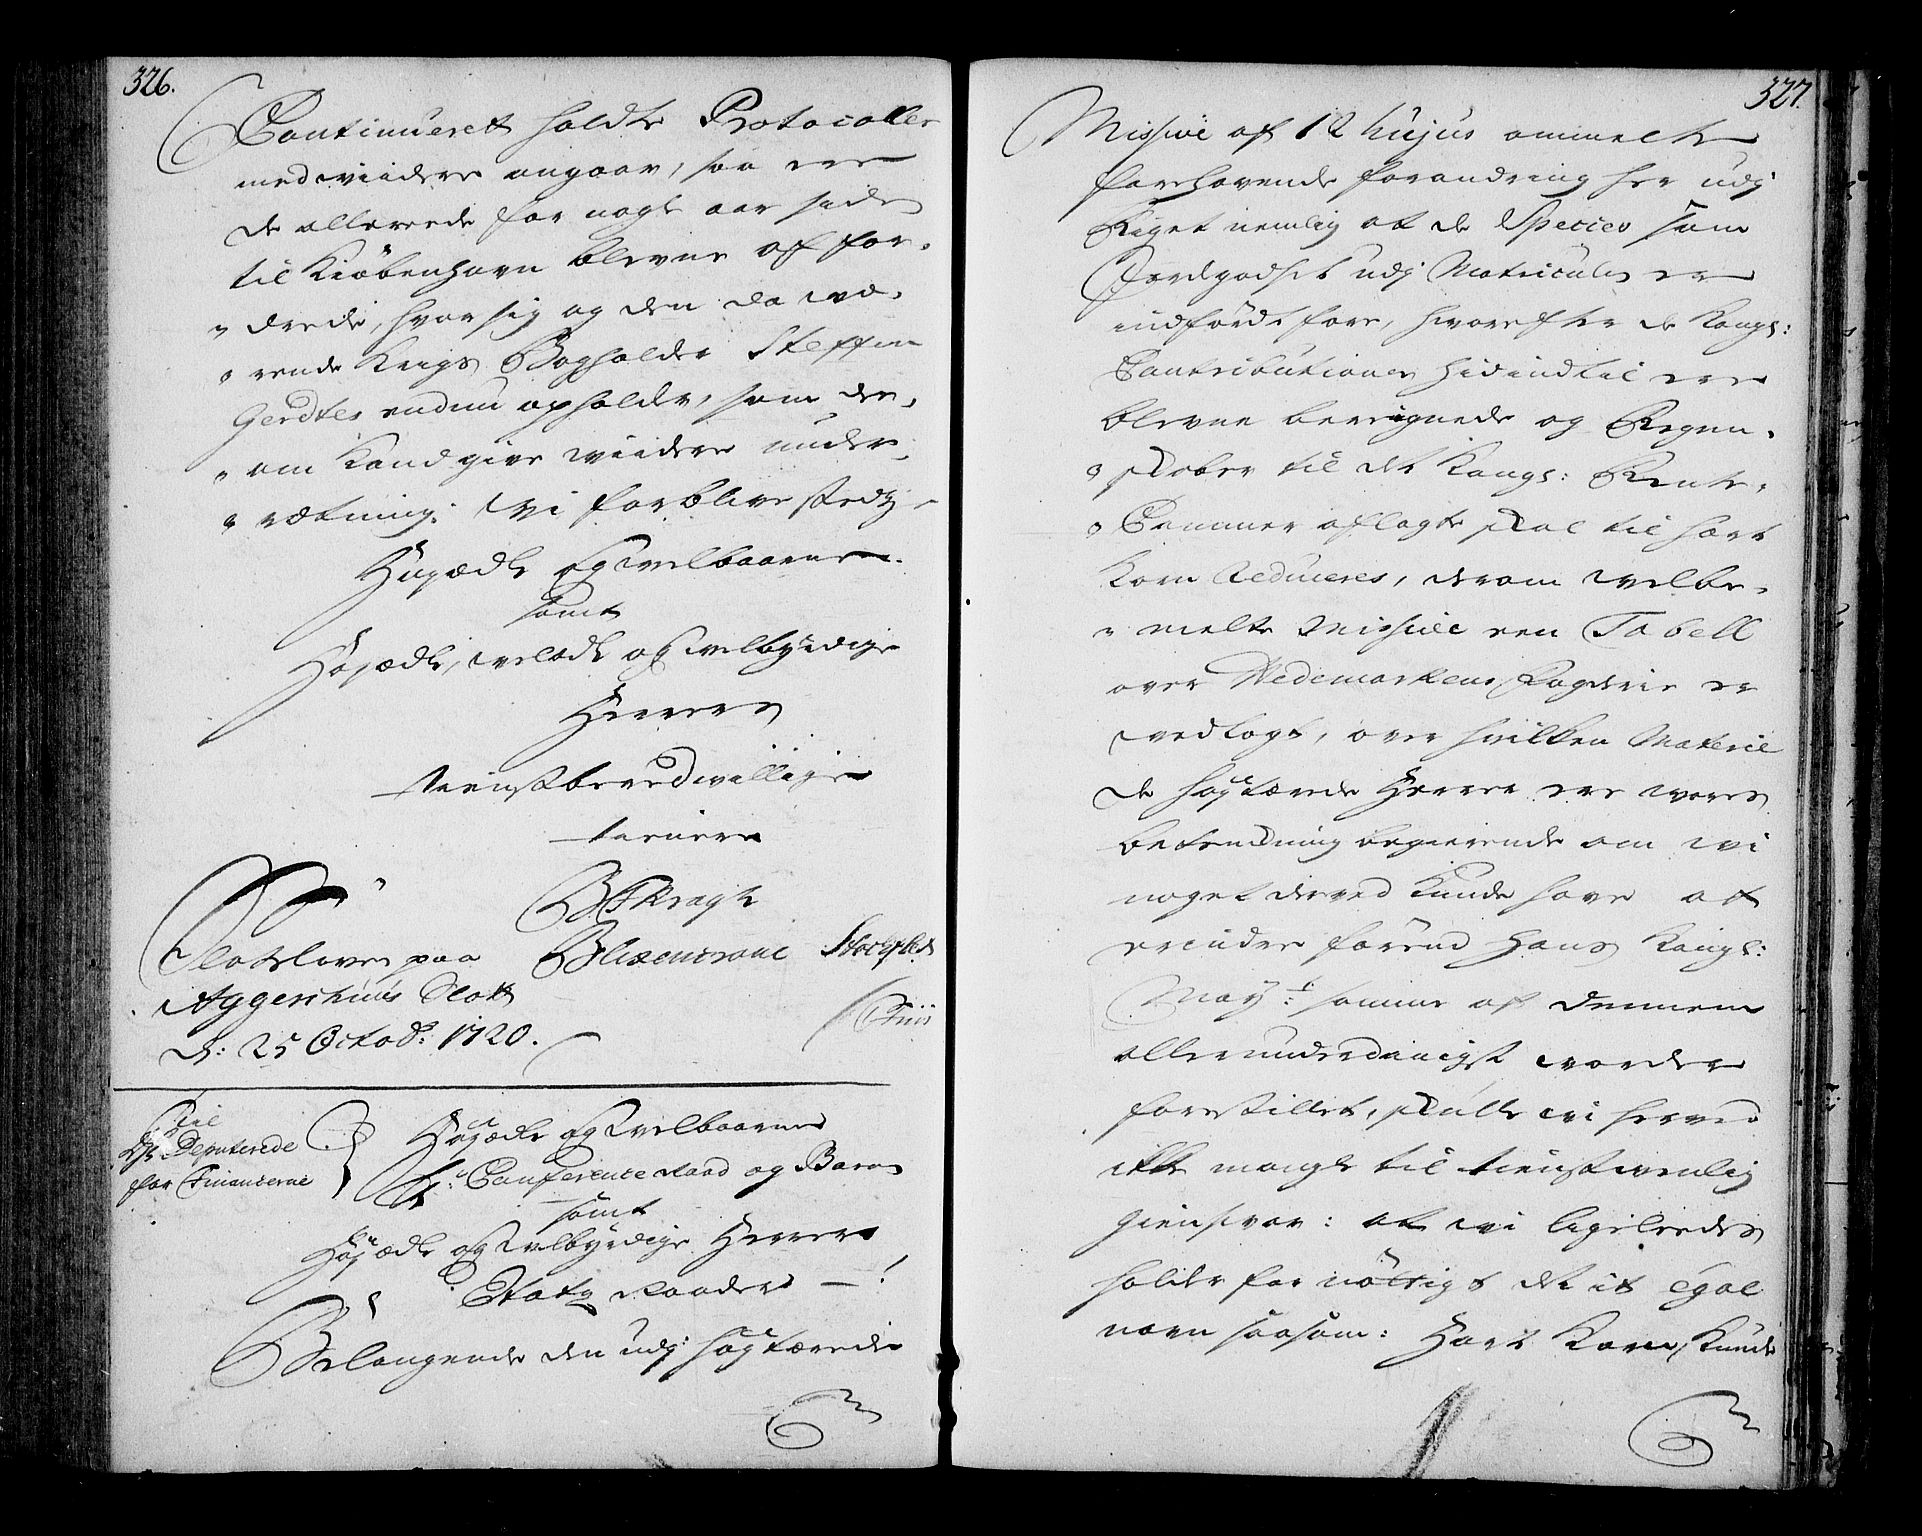 326.
Continueret holdte Protocoller
med viidere angaar, saa ere
de allerede for nogle aar siden
til Kiöbenhavn blevne affor-
drede, hvor sig og den da væ-
rende Krigs Bogholder Steffen
Gerdtes endnu opholder, som der-
om kand give viidere under-
rætning. Vi forblive stedz
Höyædle og velbaarne
samt
Höyædle, velædle og velbyrdige
Herrers
tienstberedvillige
tienere
Slotsloven paa
Aggershuus Slott
d: 25 Octob: 1720.
B F Kragh
Blixencrone Stockfleth
Friis
Til
de Deputerede
for Financerne
Höyædle og Velbaarne
Hr. Conference Raad og Baron
samt
Höyædle og Velbyrdige Herrer
Etatz Raader - !
Belangende den udj höytærede
327
Missive af 12 hujus ommelte
forehavende forandring her udj
Riget nemlig at de Species som
Jordgodset udj Matriculen er
indfördt fore, hvorefter de Kongl:
Contributioner hidindtil ere
blevne bereignede og Regen-
skaber til det Kongl: Rente-
Cammer aflagte skal til hart
Korn Reduceres, derom velbe-
melte Missive een Tabell
over Hedemarkens fogderie er
vedlagt, over hvilken Materie
de höytærede Herrer ere vores
betenckning begierende om vi
noget derved kunde have at
erindre förend Hans Kongl:
Mayt: somme af dennem
allerunderdanigst vorder
forestillet, skulle vi herved
ikke mangle til tienstvenlig
giensvar: at vi ligeleedes
holder for nöttigt det it egal
navn saasom: Hart Korn, kunde